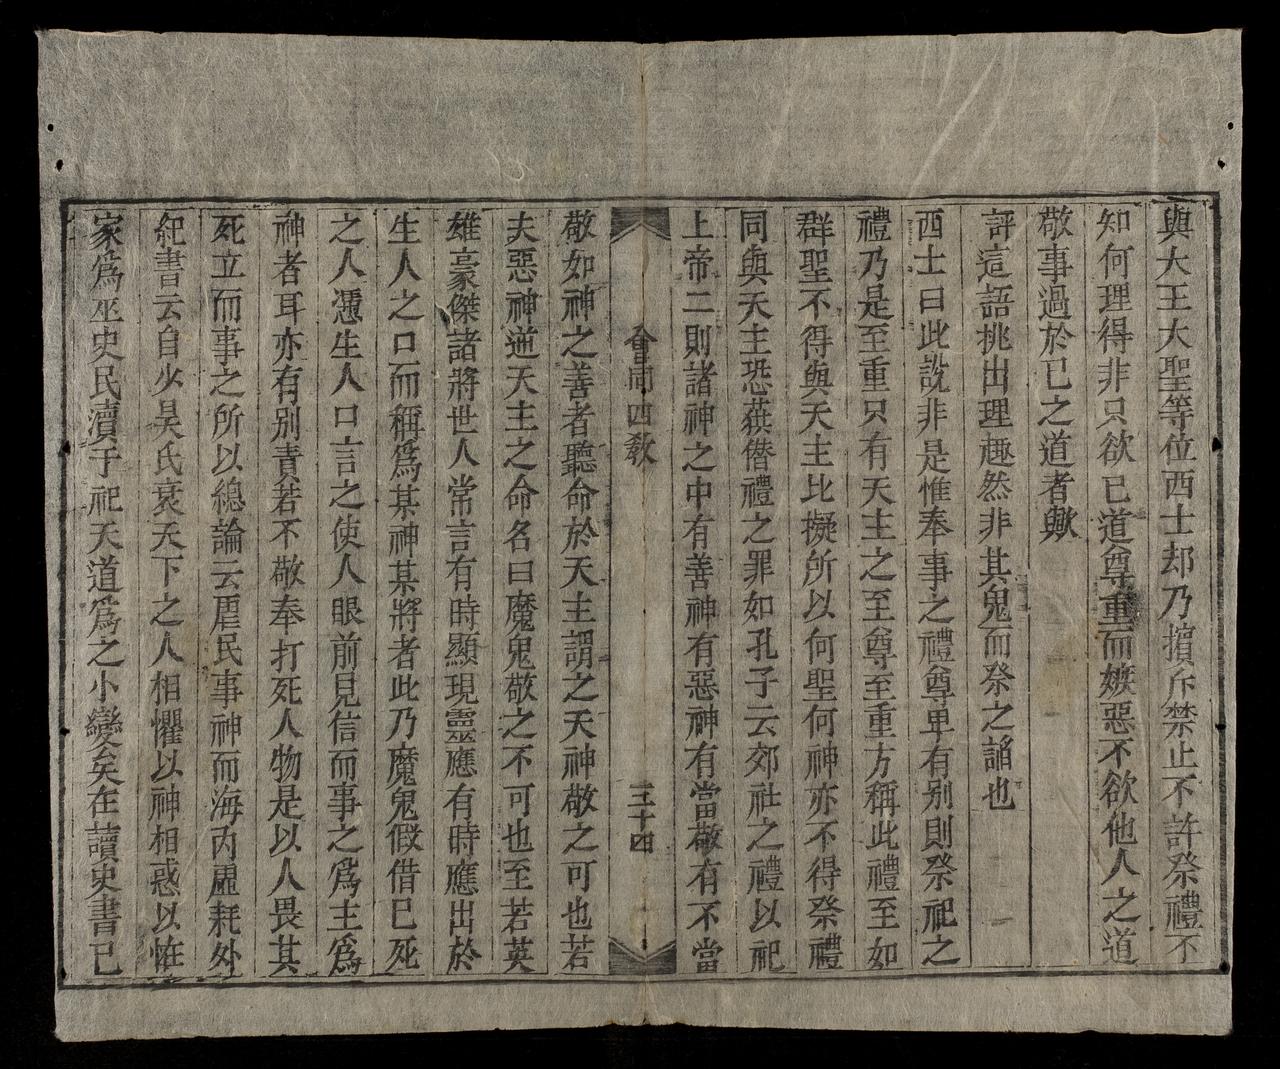 與大王大聖等位西士却乃擯斥禁止不許祭禮不
知何理得非只欲已道尊重而嫉惡不欲他人之道
敬事過於已之道者歟
評這語挑出理趣然非其鬼而祭之謟也
西士曰此說非是惟奉事之禮尊卑有别則祭祀之
禮乃是至重只有天主之至尊至重方稱此禮至如
群聖不得與天主比擬所以何聖何神亦不得祭禮
同與天主恐蔱僭禮之罪如孔子云郊社之禮以祀
上帝二則諸神之中有善神有惡神有當敬有不當
會同四教
三十四
敬如神之善者聽命於天主謂之天神敬之可也若
夫惡神逆天主之命名曰魔鬼敬之不可也至若英
雄豪傑諸將世人常言有時顯現靈應有時應出於
生人之口而稱爲某神某將者此乃魔鬼假借已死
之人憑生人口言之使人眼前見信而事之爲主爲
神者耳亦有别責若不敬奉打死人物是以人畏其
死立而事之所以緫論云雇民事神而海内虛耗外
紀書云自少昊氏衰天下之人相懼以神相惑以恠
家爲巫史民瀆于祀天道爲之小變矣在讀史書已